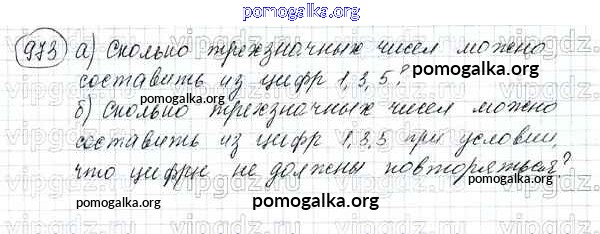 pomogalka.org
973 а) Сколько трехзначных чисел можно
составить из цифр 1, 3, 5? pomogalka.org
pomogalka.org
б) Сколько трехзначных чисел можно
составить из цифр 1, 3, 5 при условии,
что цифры не должны повторяться?
pomogalka.org pomogalka.org
pomogalka.org